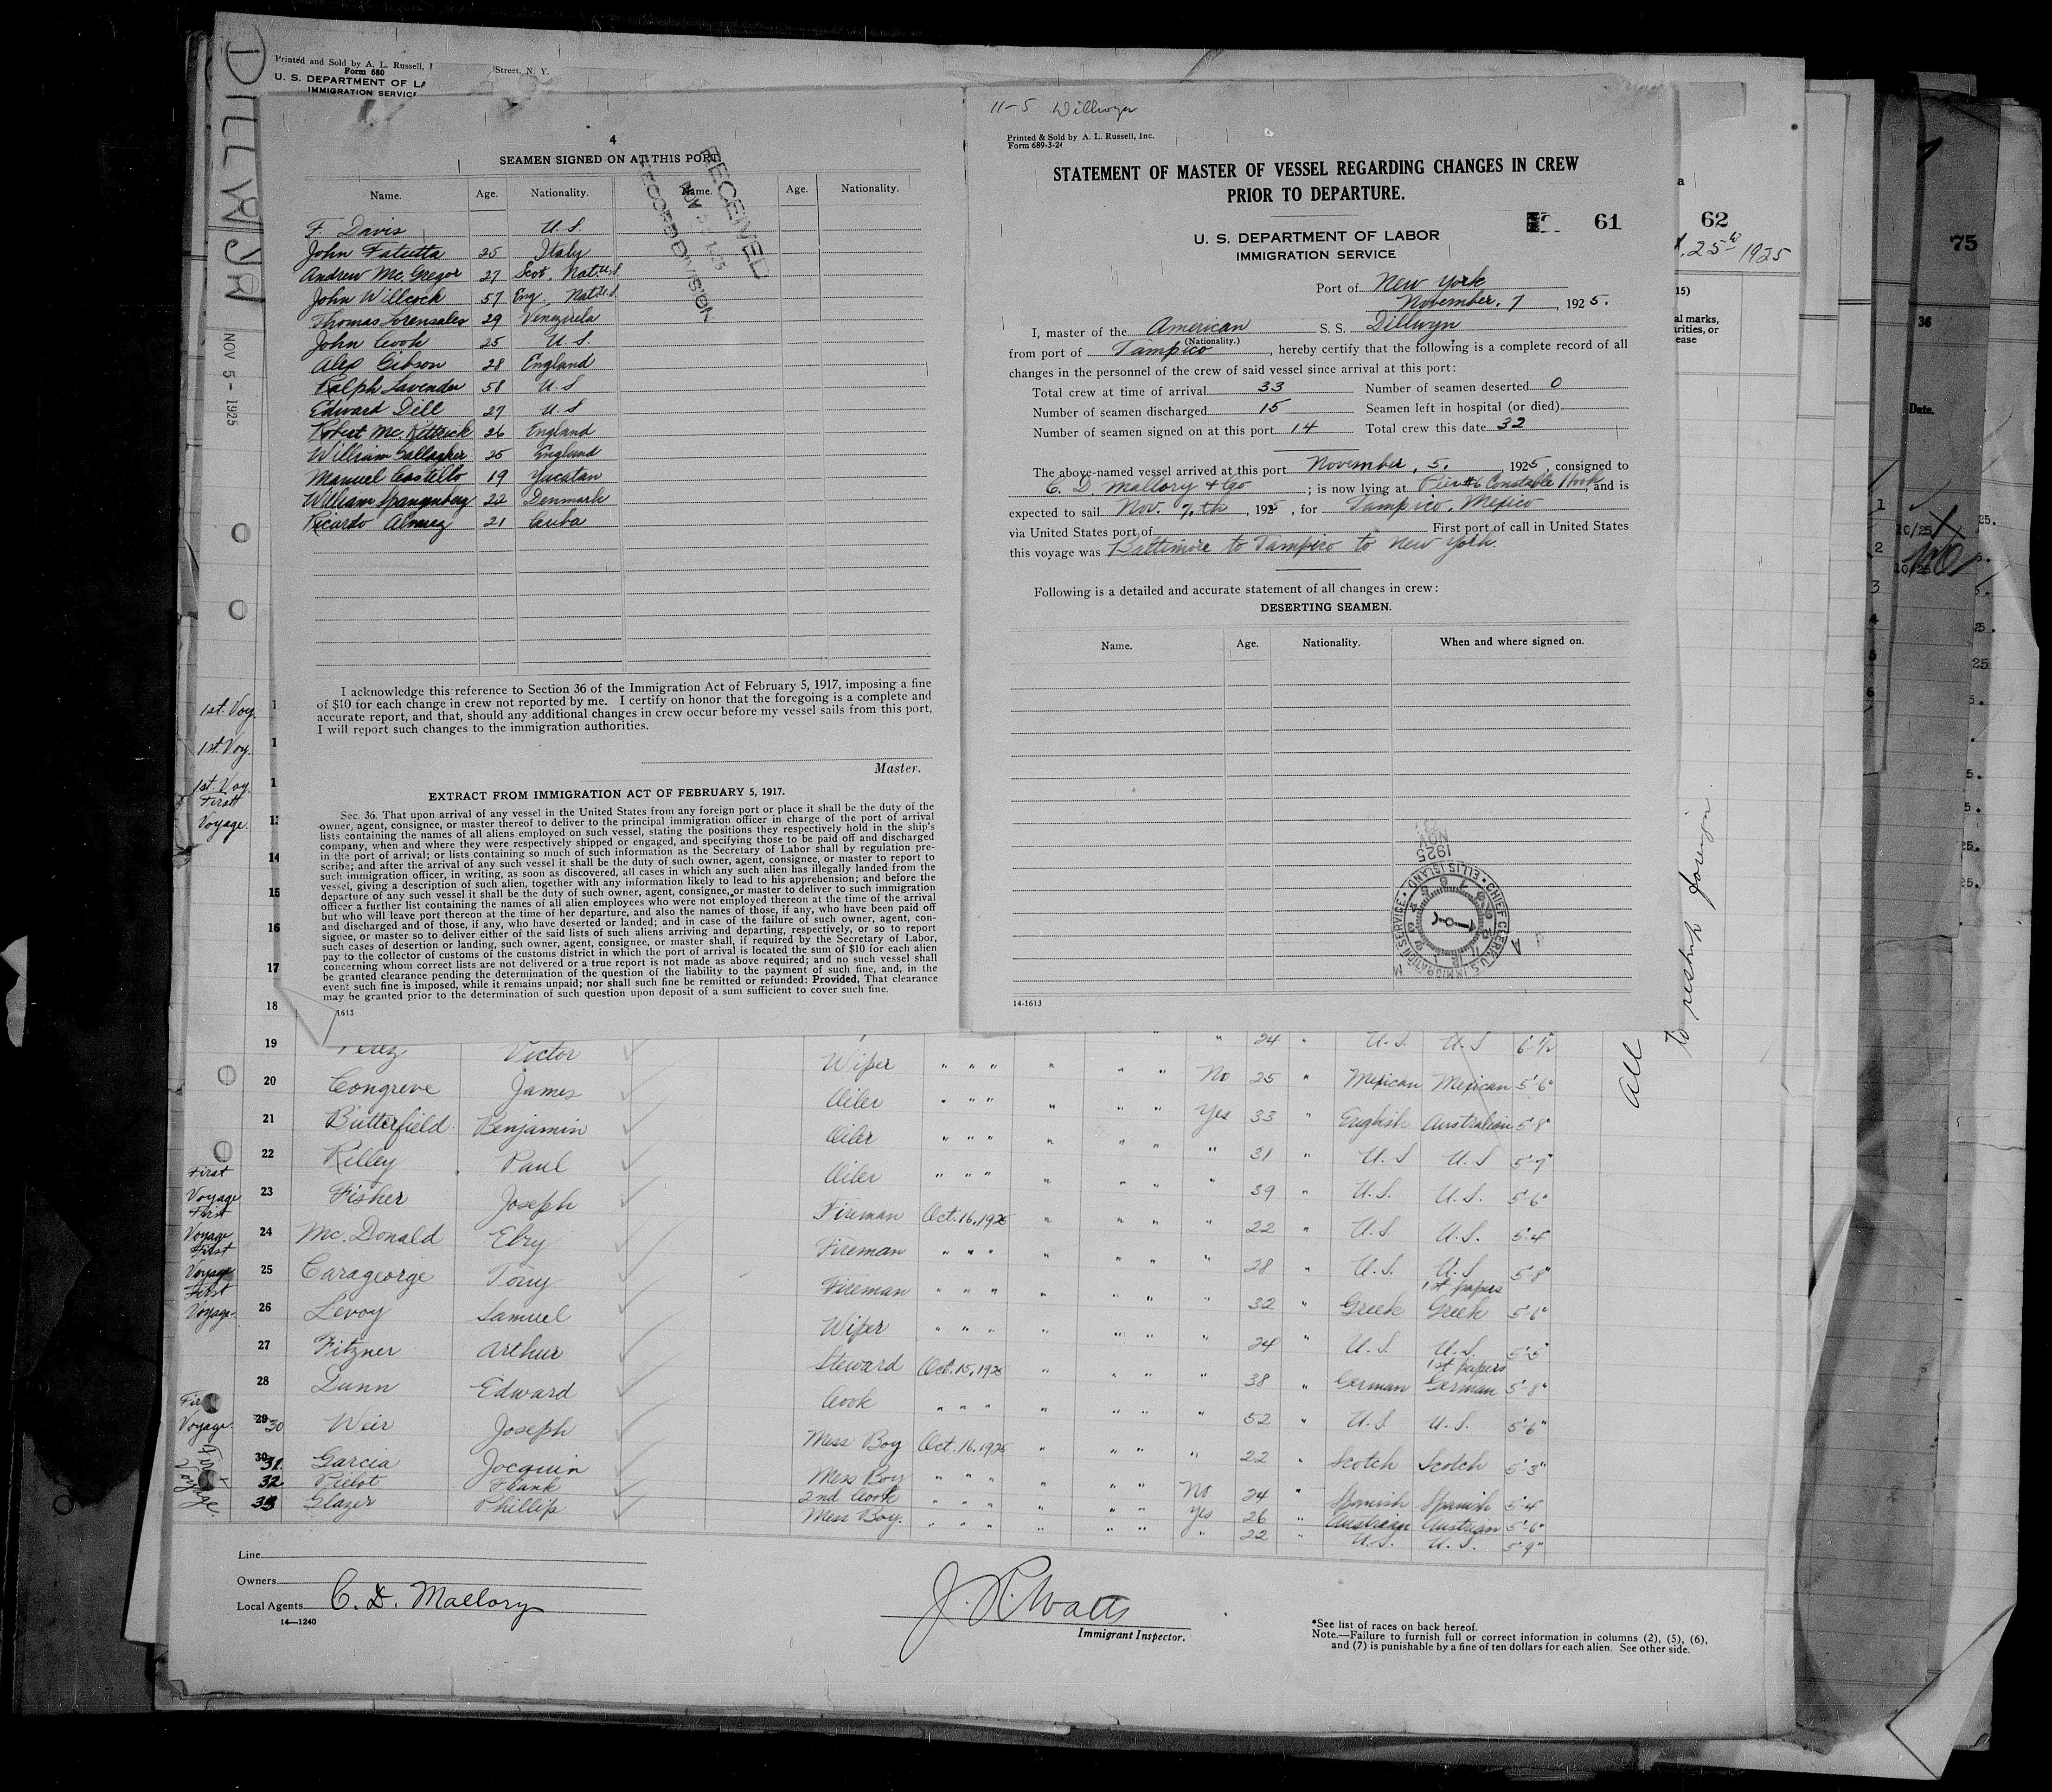 DILLWYN
NOV 5 - 1925
Printed and Sold by A. L. Russell,
Street, N. Y.
Form 680
U. S. DEPARTMENT OF LA
IMMIGRATION SERVIC
4
SEAMEN SIGNED ON AT THIS PORT
Name. Age. Nationality. Name. Age. Nationality.
RECEIVED
NOV 1925
RECORD DIVISION
F. Davis U.S.
John Fatutta 25 Italy
Andrew Mc. Gregor 27 Scot. Nat. U.S.
John Willcock 57 Eng. Nat. U.S.
Thomas Lorensales 29 Venezuela
John Cook 25 U.S.
Alex Gibson 28 England
Ralph Lavender 58 U.S
Edward Dill 27 U.S
Robert Mc. Kittrick 26 England
William Gallagher 25 England
Manuel Castillo 19 Yucatan
William Spangnberg 22 Denmark
Ricardo Alvarez 21 Cuba
I acknowledge this reference to Section 36 of the Immigration Act of February 5, 1917, imposing a fine
of $10 for each change in crew not reported by me. I certify on honor that the foregoing is a complete and
accurate report, and that, should any additional changes in crew occur before my vessel sails from this port,
I will report such changes to the immigration authorities.
Master.
EXTRACT FROM IMMIGRATION ACT OF FEBRUARY 5, 1917.
Sec. 36. That upon arrival of any vessel in the United States from any foreign port or place it shall be the duty of the
owner, agent, consignee, or master thereof to deliver to the principal immigration officer in charge of the port of arrival
lists containing the names of all aliens employed on such vessel, stating the positions they respectively hold in the ship's
company, when and where they were respectively shipped or engaged, and specifying those to be paid off and discharged
in the port of arrival; or lists containing so much of such information as the Secretary of Labor shall by regulation pre-
scribe; and after the arrival of any such vessel it shall be the duty of such owner, agent, consignee, or master to report to
such immigration officer, in writing, as soon as discovered, all cases in which any such alien has illegally landed from the
vessel, giving a description of such alien, together with any information likely to lead to his apprehension; and before the
departure of any such vessel it shall be the duty of such owner, agent, consignee, or master to deliver to such immigration
officer a further list containing the names of all alien employees who were not employed thereon at the time of the arrival
but who will leave port thereon at the time of her departure, and also the names of those, if any, who have been paid off
and discharged and of those, if any, who have deserted or landed; and in case of the failure of such owner, agent, con-
signee, or master so to deliver either of the said lists of such aliens arriving and departing, respectively, or so to report
such cases of desertion or landing, such owner, agent, consignee, or master shall, if required by the Secretary of Labor,
pay to the collector of customs of the customs district in which the port of arrival is located the sum of $10 for each alien
concerning whom correct lists are not delivered or a true report is not made as above required; and no such vessel shall
be granted clearance pending the determination of the question of the liability to the payment of such fine, and, in the
event such fine is imposed, while it remains unpaid; nor shall such fine be remitted or refunded: Provided, That clearance
may be granted prior to the determination of such question upon deposit of a sum sufficient to cover such fine.
1613
11-5 Dillwyn
Printed & Sold by A. L. Russell, Inc.
Form 689-3-24
STATEMENT OF MASTER OF VESSEL REGARDING CHANGES IN CREW
PRIOR TO DEPARTURE.
61
U. S. DEPARTMENT OF LABOR
IMMIGRATION SERVICE
Port of New York
November. 7, 1925.
I, master of the American S. S. Dillwyn
(Nationality.)
from port of Tampico, hereby certify that the following is a complete record of all
changes in the personnel of the crew of said vessel since arrival at this port:
Total crew at time of arrival 33 Number of seamen deserted 0
Number of seamen discharged 15 Seamen left in hospital (or died)
Number of seamen signed on at this port 14 Total crew this date 32
The above-named vessel arrived at this port November, 5, 1925, consigned to
C. D. Mallory & Co; is now lying at Pier #6 Constable Hook, and is
expected to sail Nov. 7th, 1925, for Tampico, Mexico
via United States port of First port of call in United States
this voyage was Baltimore to Tampico to New York.
Following is a detailed and accurate statement of all changes in crew:
DESERTING SEAMEN.
Name. Age. Nationality. When and where signed on.
1925
NOV
CHIEF CLERK, U.S. IMMIGRATION SERVICE • ELLIS ISLAND •
14-1613
62
25th 1925
15)
al marks,
urities, or
ease
75
36
Date.
1
2
3
4
5
6
10/25
10/25
All to reship foreign.
1st. Voy.
1st. Voy.
1st. Voy.
First
Voyage. 13
14
15
16
17
18
24 " U.S. U.S 6-1/2
19 Perez Victor Wiper " " " " " " No 25 " Mexican Mexican 5'6"
20 Congreve James Oiler " " " " " " Yes 33 " English Australian 5'8"
21 Butterfield Benjamin Oiler " " " " " " " 31 " U.S U.S 5'7"
22 Rilley Paul Oiler " " " " " " " 39 " U.S. U.S. 5'6"
First Voyage 23 Fisher Joseph Fireman Oct. 16, 1925 " " " " 22 " U.S U.S. 5'4
First Voyage 24 Mc. Donald Elry Fireman " " " " " " " 28 " U.S. U.S 5'8"
First Voyage 25 Carageorge Tony Fireman " " " " " " " 32 " Greek 1st papers Greek 5'6"
First Voyage. 26 Levoy Samuel Wiper " " " " " " " 24 " U.S U.S. 5'5"
27 Fitzner Arthur Steward Oct. 15, 1925 " " " " 38 " German 1st papers German 5'8"
28 Dunn Edward Cook " " " " " " " 52 " U.S. U.S. 5'6"
First Voyage. 29 30 Weir Joseph Mess Boy Oct. 16, 1925 " " " " 22 " Scotch Scotch 5'3"
First Voyage. 30 31. Garcia Jocquin Mess Boy " " " " " " No 24 " Spanish Spanish 5'4
32 Pielot Frank 2nd Cook " " " " " " Yes 26 " Austrian Austrian 5'6"
33 Glazer Phillip Mess Boy. " " " " " " " 22 " U.S. U.S. 5'9"
Line
Owners
Local Agents C. D. Mallory
14—1240
J. R. Watts
Immigrant Inspector.
*See list of races on back hereof.
Note.—Failure to furnish full or correct information in columns (2), (5), (6),
and (7) is punishable by a fine of ten dollars for each alien. See other side.